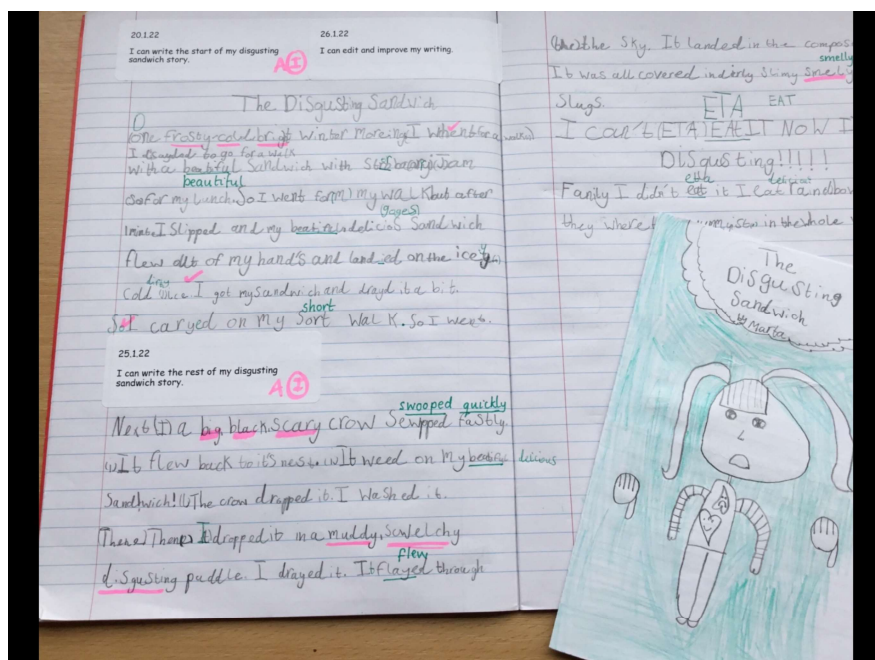 20.1.22
I can write the start of my disgusting
sandwich story.
A I
26.1.22
I can edit and improve my writing.
The Disgusting Sandwich
One frosty could bright winter I went for a
I to go for a walk
with a beatiful sandwich with jam
beautiful
for my lunch. So I went for my walk but after
1 minite I slipped and my delicios sandwich
flew out of my hand's and landed on the icey
cold I got my sandwich and drayd it a bit.
short
So I caryed on my sort walk. So I went.
25.1.22
I can write the rest of my disgusting
sandwich story.
A I
swooped quickly
Next (I) a big, black, scary crow fastly.
It flew back to it's nest. It weed on my delicious
Sandwich! The crow dropped it. I washed it.
Then I dropped it in a muddy, scwelchy
flew
disgusting puddle. I drayed it. It flayed through
the sky. It landed in the compos
smelly
It was all covered in slimy
Slugs. ETA EAT
I can't (ETA) EAT IT NOW I
DISgusting!!!!!
I didn't eat it I eat
they where in the whole
The
DISgusting
Sandwich
by Marta